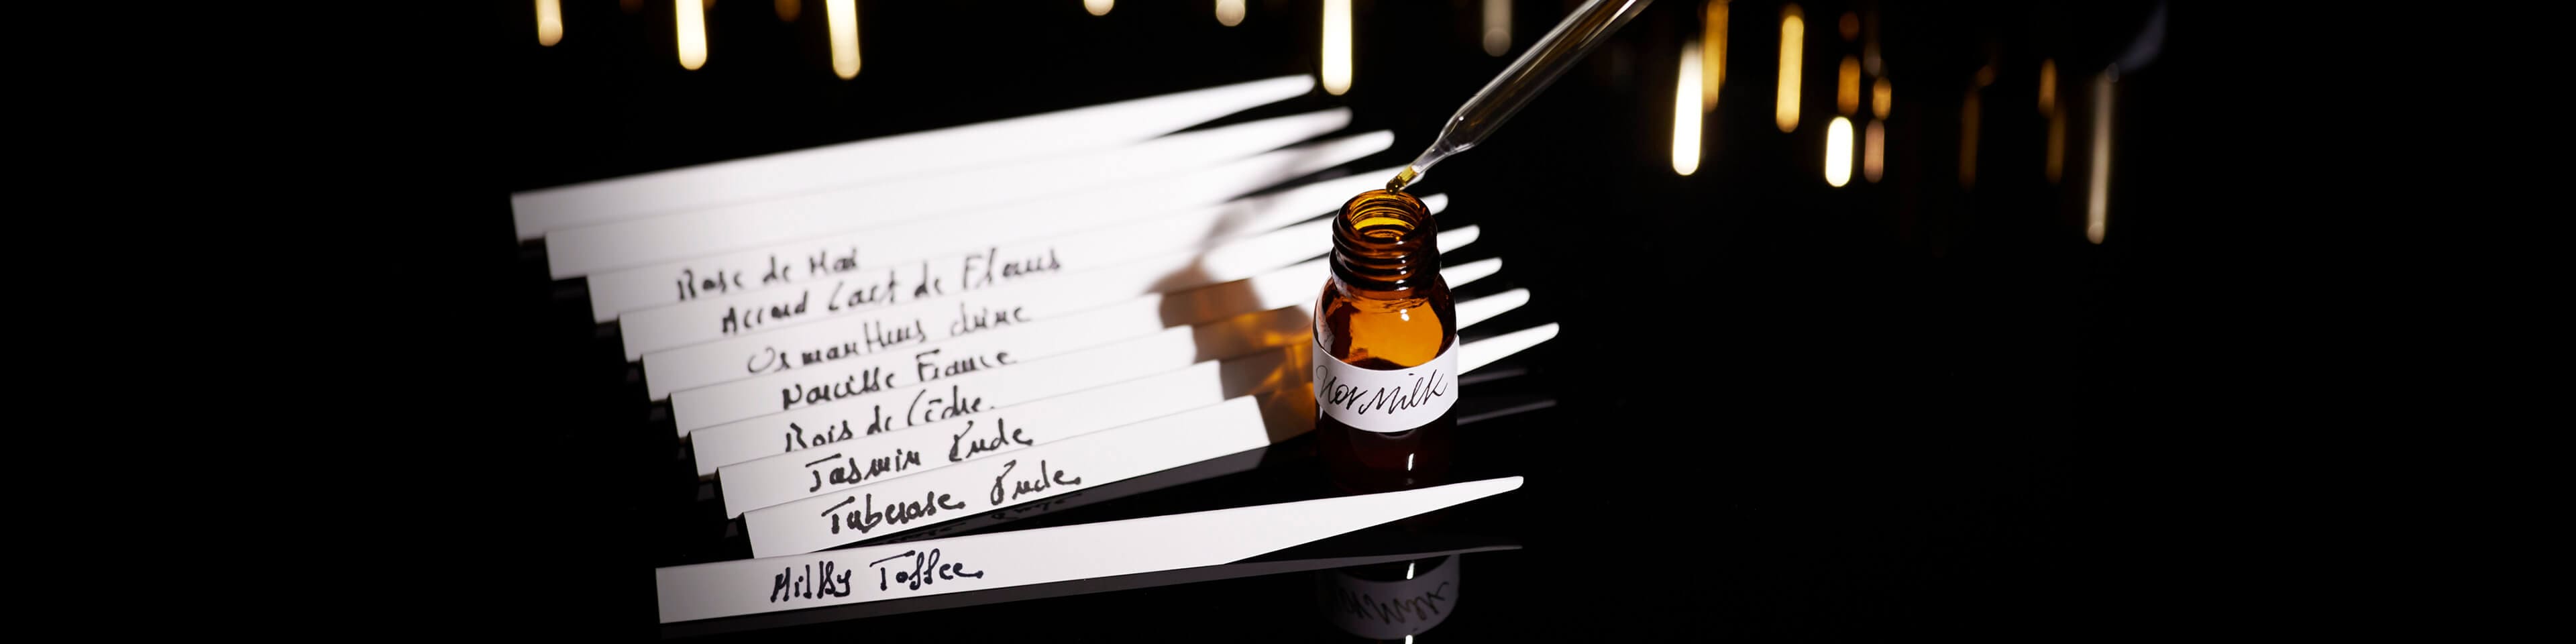 Rose de Mai
Accord Lact de Fleurs
Osmanthus chine
Narcisse France
Bois de Cèdre.
Jasmin Inde
Tuberose Inde
Milky Toffee
Hot Milk